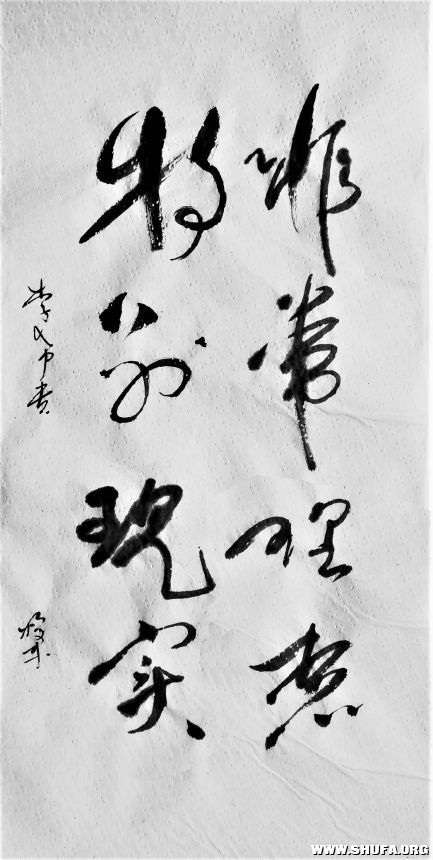 非常理想
特别现实
WWW.SHUFA.ORG